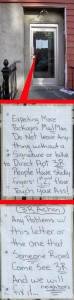 * Expecting More
Packages Mail Man
Do Not Leave Any
thing without a
* Signature or take
Direct Pic
People Have Sticky
fingers
Touch Your Ass!
(3R Action)
Any Problems w
this letter or
the one that
Someone Ripped
Come See 3R
And we will
fix it...
neighbors